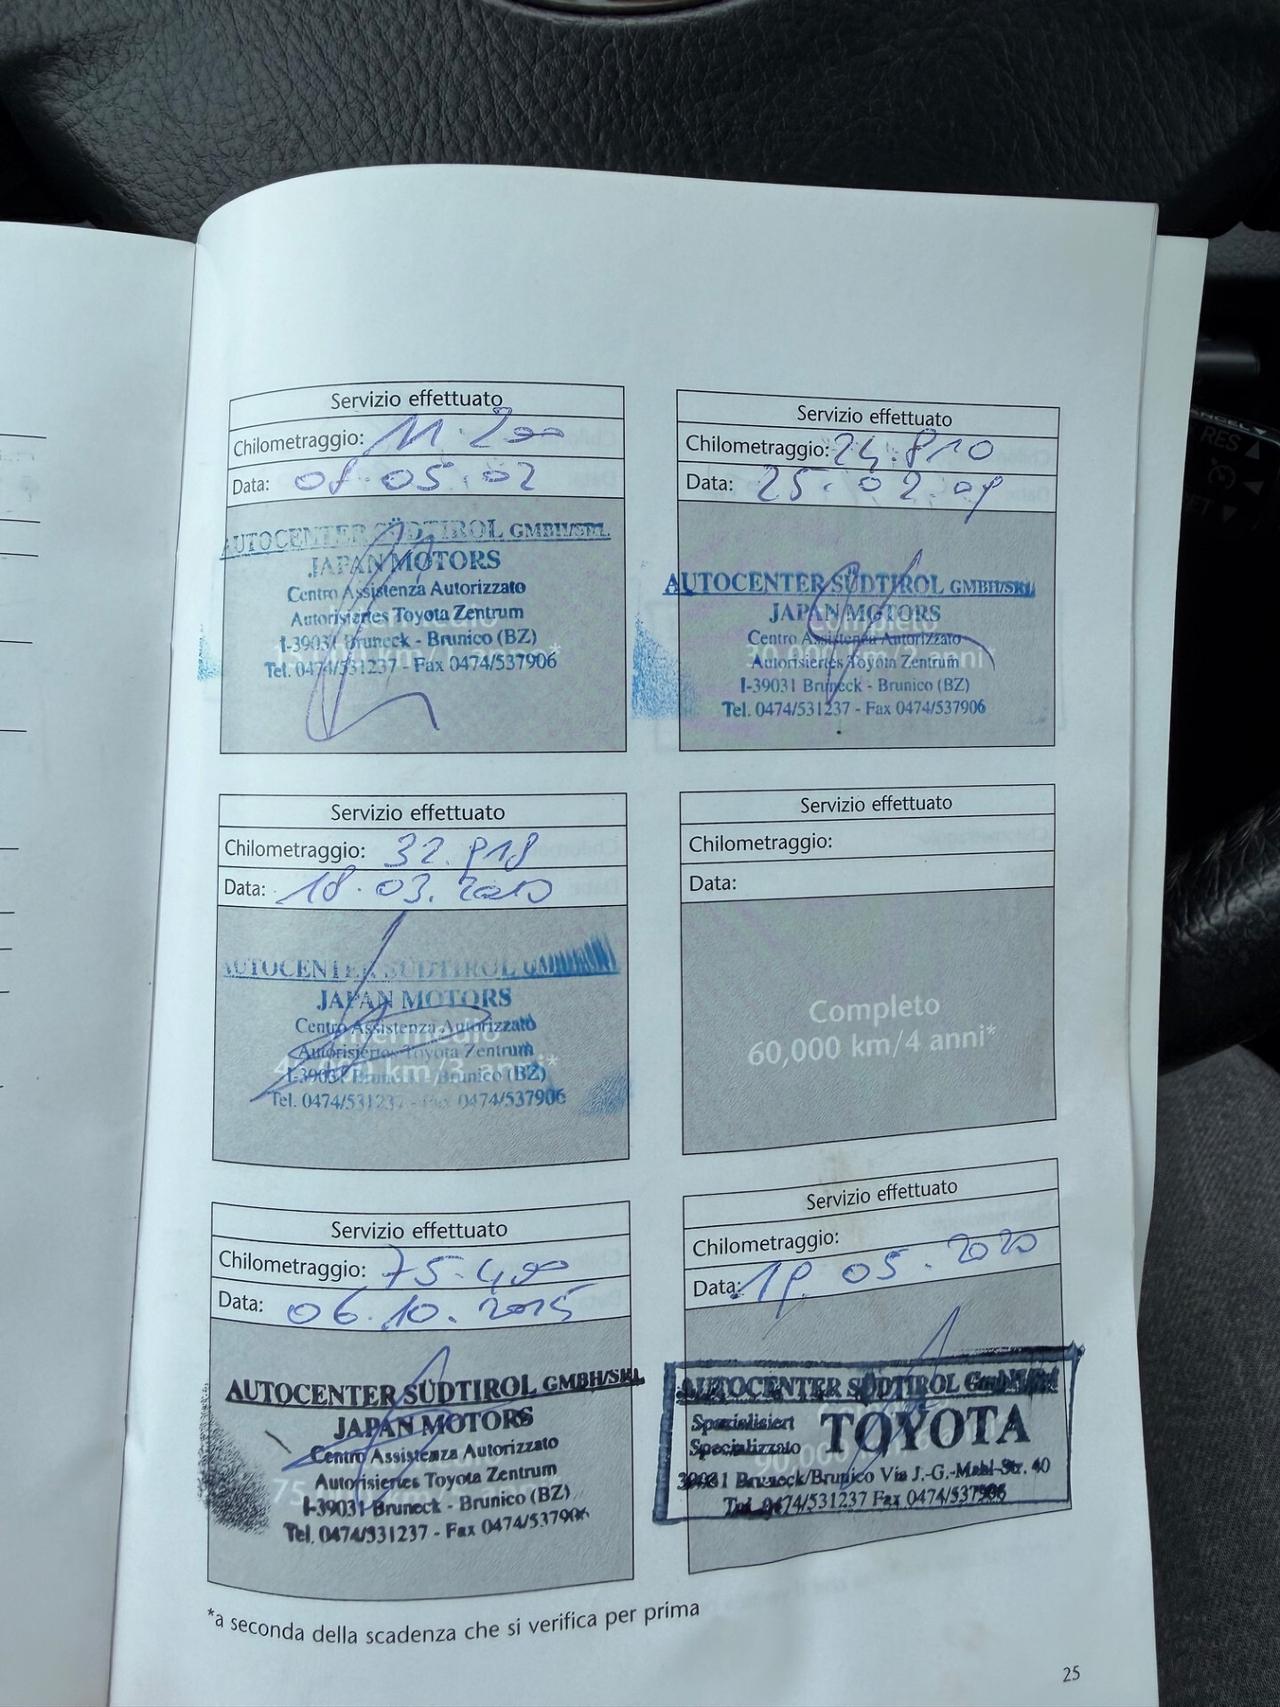 Servizio effettuato
Chilometraggio: 11.200
Data: 08.05.02
AUTOCENTER SÜDTIROL GMBH/SRL
JAPAN MOTORS
Centro Assistenza Autorizzato
Autorisiertes Toyota Zentrum
I-39031 Bruneck - Brunico (BZ)
Tel. 0474/531237 - Fax 0474/537906
Servizio effettuato
Chilometraggio: 24.810
Data: 25.02.09
AUTOCENTER SÜDTIROL GMBH/SRL
JAPAN MOTORS
Completo
Centro Assistenza Autorizzato
30,000 km/2 anni*
Autorisiertes Toyota Zentrum
I-39031 Bruneck - Brunico (BZ)
Tel. 0474/531237 - Fax 0474/537906
Servizio effettuato
Chilometraggio: 32.918
Data: 18.03.2010
AUTOCENTER SÜDTIROL
JAPAN MOTORS
Centro Assistenza Autorizzato
Intermedio
Autorisiertes Toyota Zentrum
45,000 km/3 anni*
I-39031 Bruneck - Brunico (BZ)
Tel. 0474/531237 - Fax 0474/537906
Servizio effettuato
Chilometraggio:
Data:
Completo
60,000 km/4 anni*
Servizio effettuato
Chilometraggio: 75.400
Data: 06.10.2015
AUTOCENTER SÜDTIROL GMBH/SRL
JAPAN MOTORS
Centro Assistenza Autorizzato
Autorisiertes Toyota Zentrum
I-39031 Bruneck - Brunico (BZ)
Tel. 0474/531237 - Fax 0474/537906
Servizio effettuato
Chilometraggio:
Data: 19.05.2020
AUTOCENTER SÜDTIROL GmbH/Srl
Spezialisiert
Specializzato
TOYOTA
90,000 km
39031 Bruneck/Brunico Via J.-G.-Mahl-Str. 40
Tel. 0474/531237 Fax 0474/537906
*a seconda della scadenza che si verifica per prima
25
CANCEL
RES